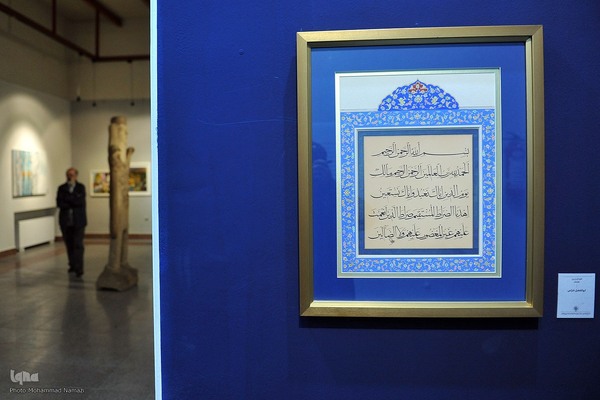 بسم الله الرحمن الرحیم
الحمد لله رب العالمین الرحمن الرحیم مالک
یوم الدین ایاک نعبد و ایاک نستعین
اهدنا الصراط المستقیم صراط الذین انعمت
علیهم غیر المغضوب علیهم و لا الضالین
iqna
Photo: Mohammad Namazi